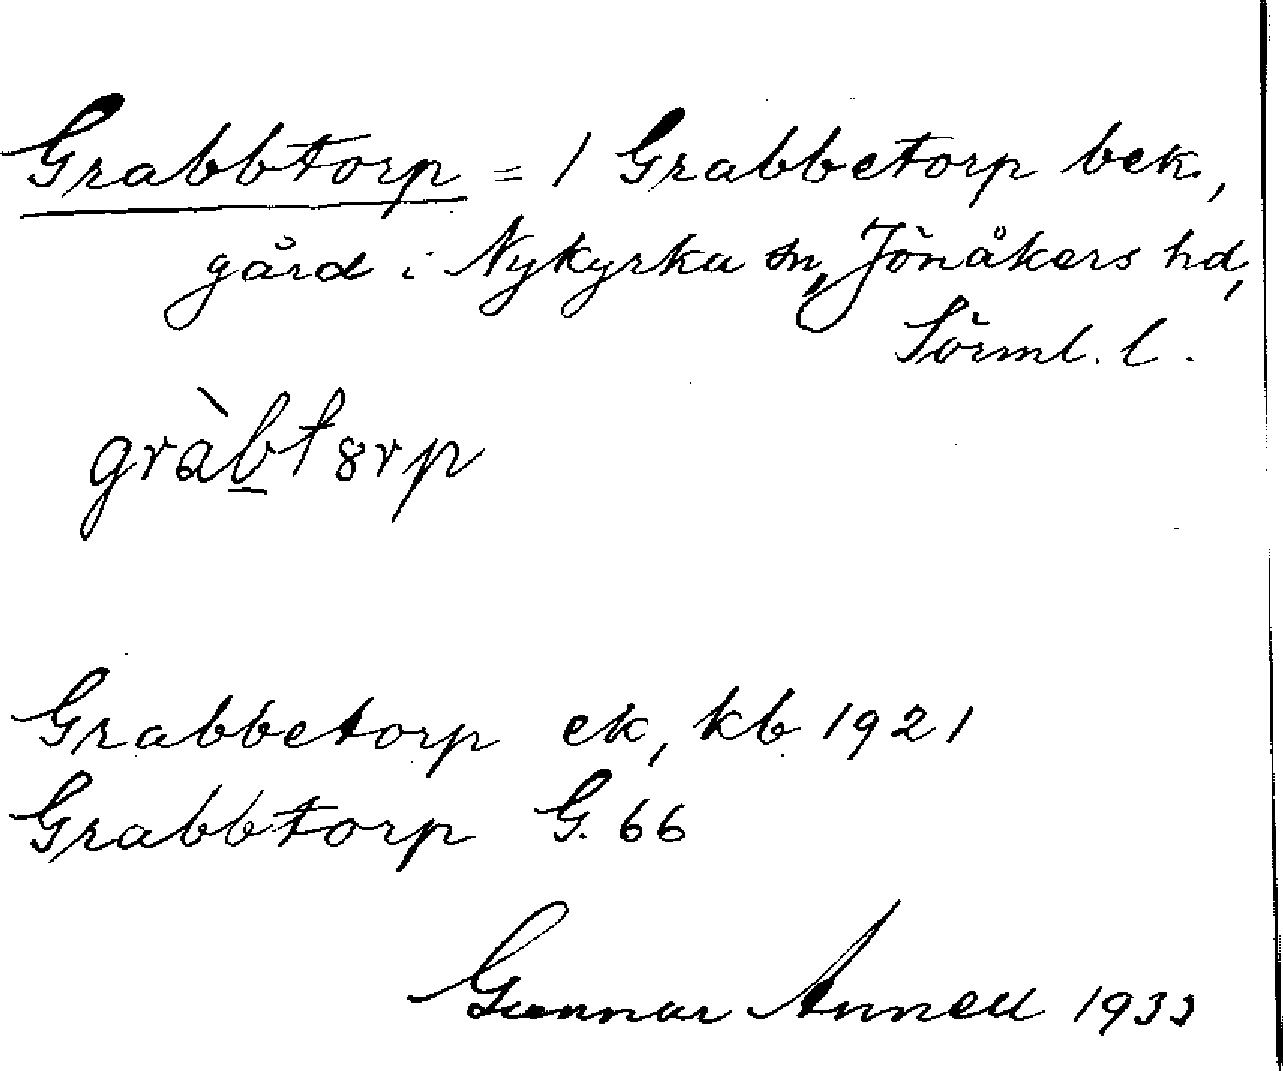 Grabbtorp = / Grabbetorp bek.,
gård i Nykyrka sn, Jönåkers hd,
Sörml. l.
gràb̲t8rp
Grabbetorp ek, kb 1921
Grabbtorp G. 66
Gunnar Annell 1933